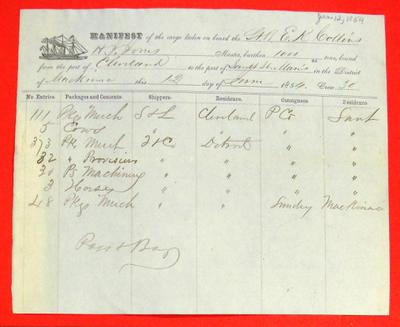 June 12, 1854
MANIFEST of the cargo taken on board the Str E.K. Collins
H. J. Jones Master, burthen 1000 tons, bound
from the port of Cleveland to the port of Sault St. Marie in the District
of Mackinac this 12 day of June 1854. Crew 30
No. Entries. Packages and Contents. Shippers. Residence. Consignees. Residence.
111 Pkg Merch S & L Cleveland P Co Saut
5 Cows " " " "
373 Pk Merch J & C Detroit " "
32 " Provision " " " "
30 B Machinery " " " "
3 Horses " " " "
48 Pkgs Merch " " Sundry Mackinac